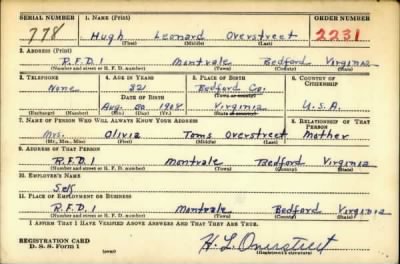 SERIAL NUMBER 1. NAME (Print) ORDER NUMBER
778 Hugh Leonard Overstreet 2231
(First) (Middle) (Last)
2. ADDRESS (Print)
R.F.D 1 Montvale Bedford Virginia
(Number and street or R. F. D. number) (Town) (County) (State)
3. TELEPHONE 4. AGE IN YEARS 5. PLACE OF BIRTH 6. COUNTRY OF CITIZENSHIP
None 32 Bedford Co.
DATE OF BIRTH (Town or county)
Aug. 1908 Virginia U.S.A.
(Exchange) (Number) (Mo.) (Day) (Yr.) (State or country)
7. NAME OF PERSON WHO WILL ALWAYS KNOW YOUR ADDRESS 8. RELATIONSHIP OF THAT PERSON
Mrs. Olivia Toms Overstreet Mother
(Mr., Mrs., Miss) (First) (Middle) (Last)
9. ADDRESS OF THAT PERSON
R.F.D 1 Montvale Bedford Virginia
(Number and street or R. F. D. number) (Town) (County) (State)
10. EMPLOYER'S NAME
Self
11. PLACE OF EMPLOYMENT OR BUSINESS
R.F.D 1 Montvale Bedford Virginia
(Number and street or R. F. D. number) (Town) (County) (State)
I AFFIRM THAT I HAVE VERIFIED ABOVE ANSWERS AND THAT THEY ARE TRUE.
REGISTRATION CARD
D. S. S. Form 1 H. L. Overstreet
(Registrant's signature)